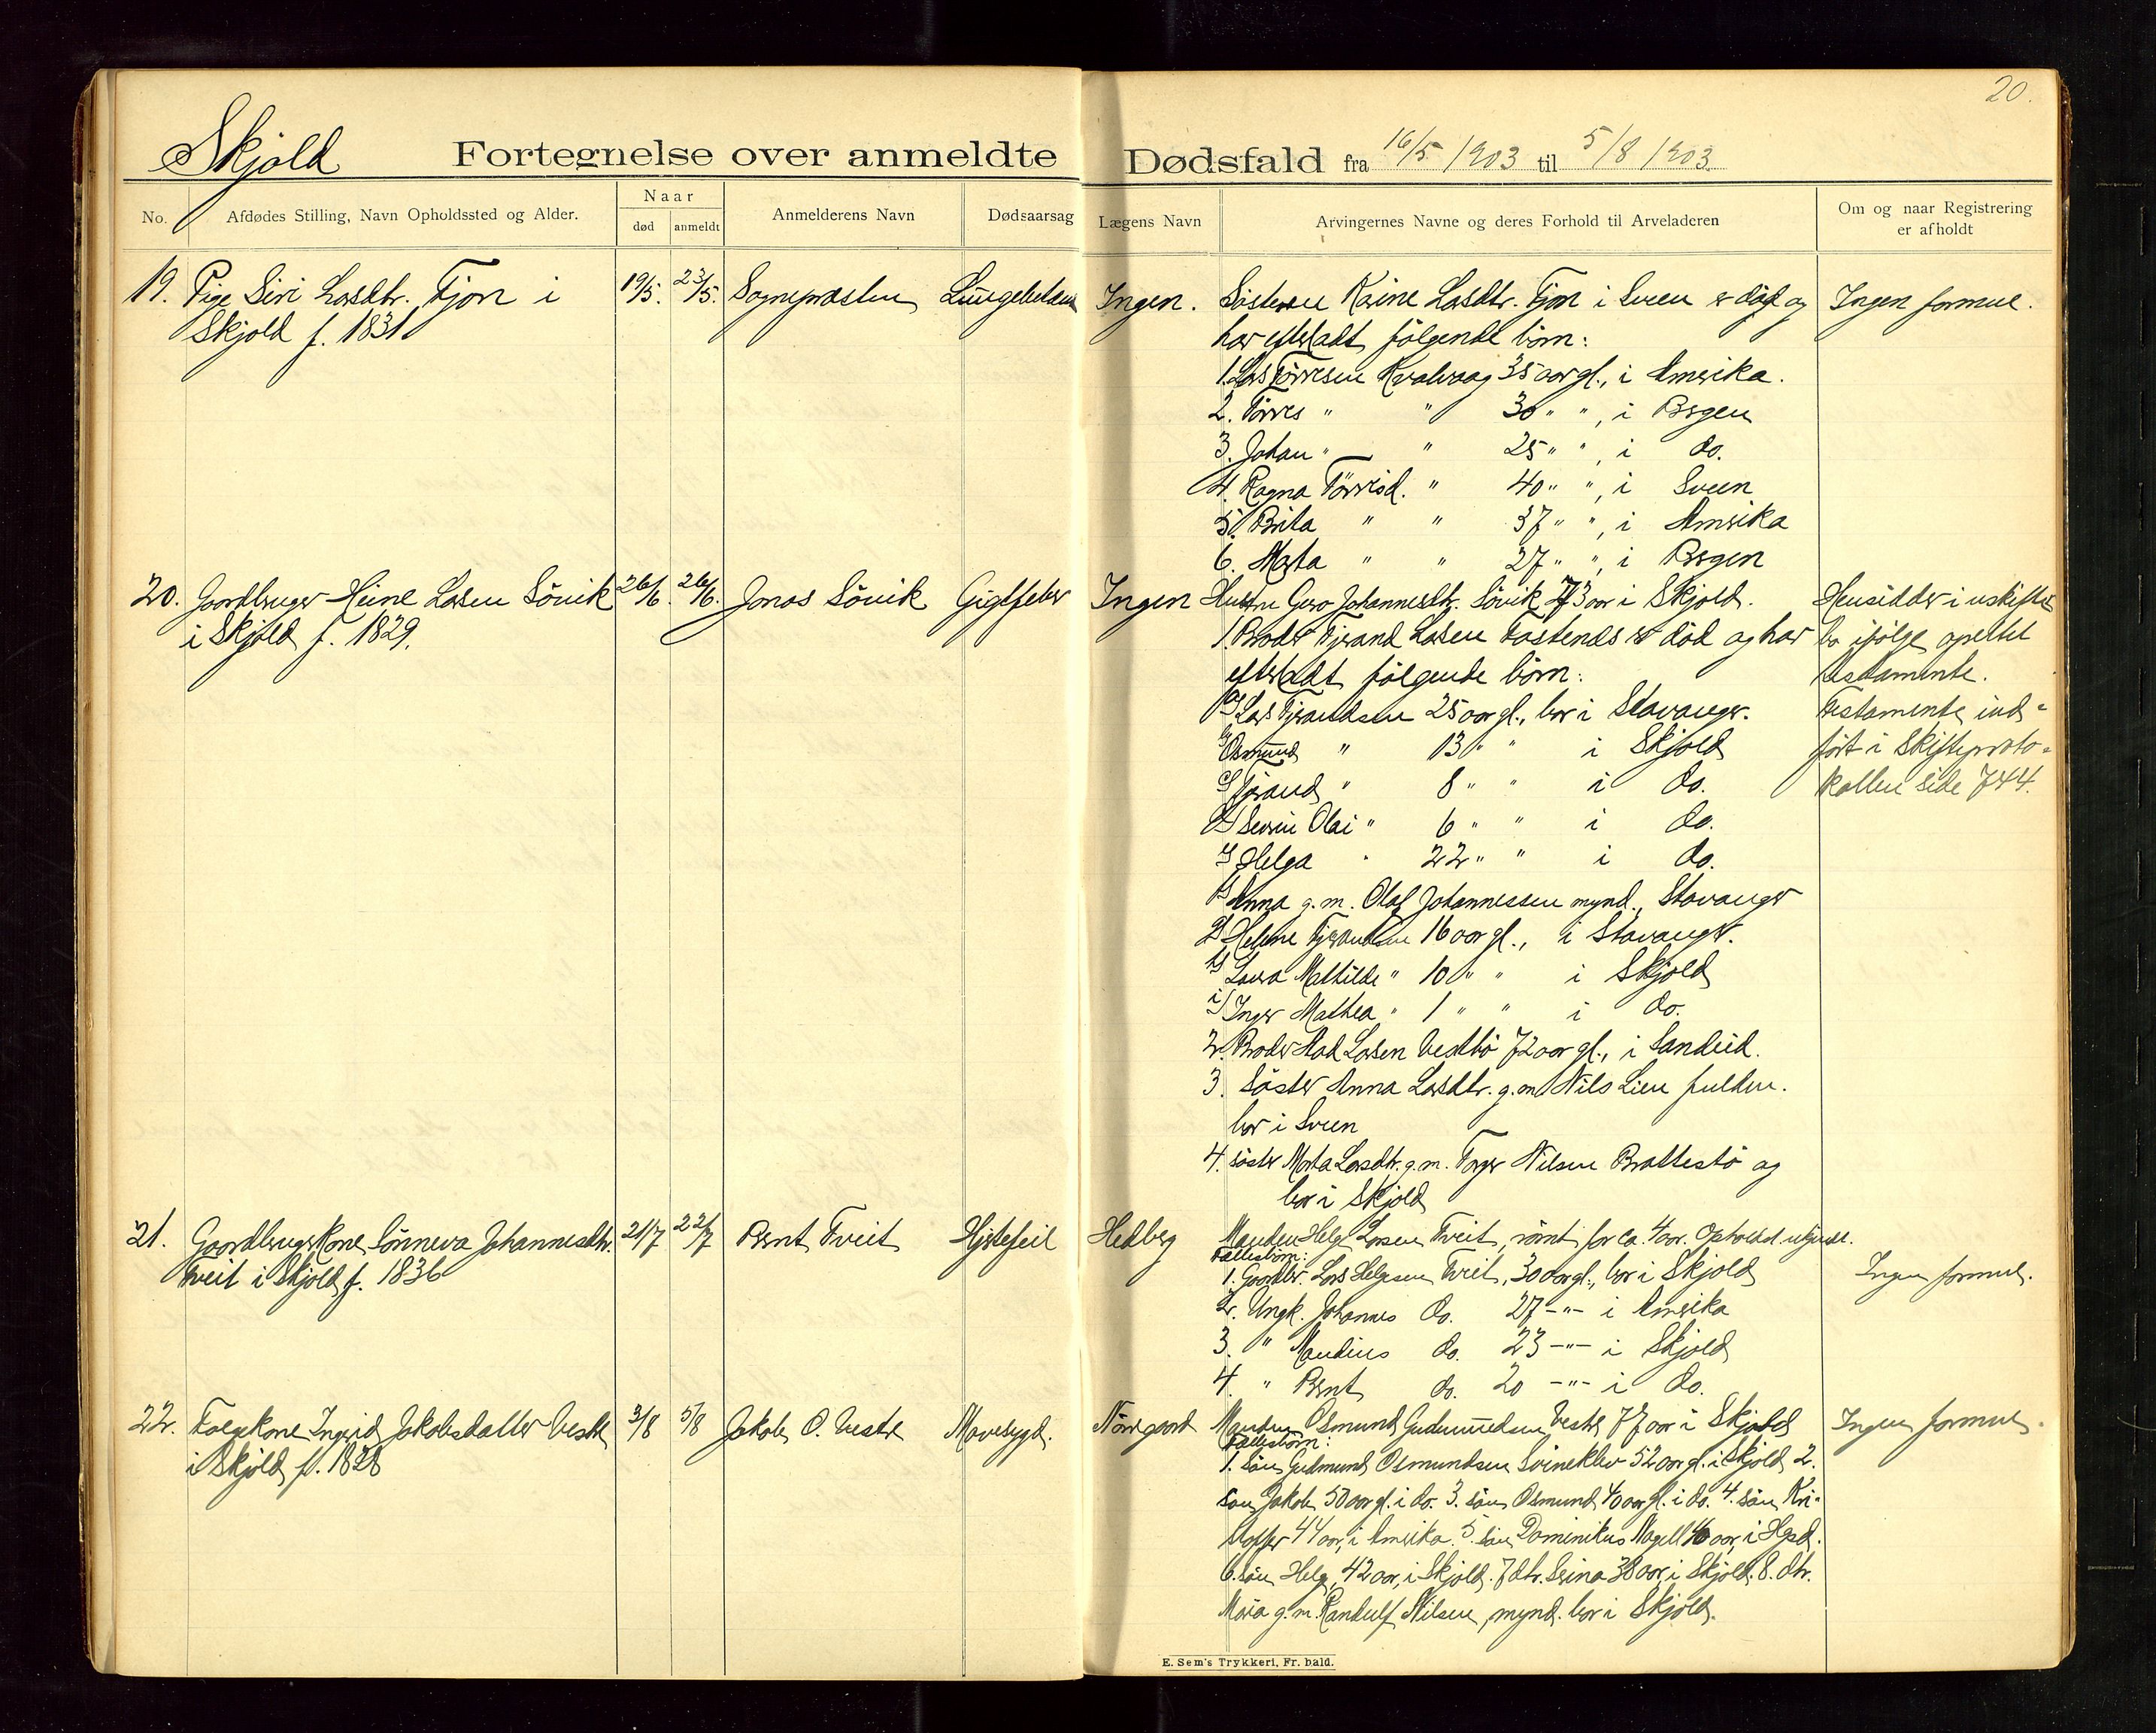 20.
Skjold
Fortegnelse over anmeldte Dødsfald fra 16/5 1903 til 5/8 1903.
No.
Afdødes Stilling, Navn Opholdssted og Alder.
Naar
død
anmeldt
Anmelderens Navn
Dødsaarsag
Lægens Navn
Arvingernes Navne og deres Forhold til Arveladeren
Om og naar Registrering
er afholdt
19. Pige Siri Larsdtr. Tjorn i
Skjold f. 1831
19/5. 23/5. Sognepræsten
Ingen.
Søsteren Larsdtr. i er død og
har efterladt følgende børn:
1. Lars Tørresen Kvalvaag 35 aar gl., i Amerika.
2. Tørres " " 30 " ", i Bergen
3. Johan " " 25 " ", i do.
4. Ragna Tørresd. " 40 " ", i Sveen
5. Brita " " 37 " ", i Amerika
6. Marta " " 27 " ", i Bergen
Ingen formue.
20. Gaardbruger Heine Larsen Søvik
i Skjold f. 1829.
26/6. 26/6. Jonas Søvik Gigtfeber
Ingen
Hustru Gjero Johannesdtr. Søvik 73 aar i Skjold.
1. Broder Tjerand Larsen er død og har
efterladt følgende børn:
a) Lars Tjerandsen 25 aar gl., bor i Stavanger.
b) Osmund " 13 " " i Skjold
c) Tjerand " 8 " " i do.
d) Severin Olai " 6 " " i do.
e) Helga " 22 " " i do.
f) Anna g. m. Olaf Johannessen mynd., Stavanger
g) Helene Tjerandsen 16 aar gl., i Stavanger.
h) Laura Mathilde " 10 " " i Skjold
i) Inger Mathea " 1 " " i do.
2. Broder Larsen Vestbø 72 aar gl., i Sandeid.
3. Søster Anna Larsdtr. g. m. Nils Lien
bor i Sveen
4. søster Marta Larsdtr. g. m. Nilsen Brattestø og
bor i Skjold
Hensidder i uskiftet
bo ifølge oprettet
testamente.
Testamente ind-
ført i Skifteproto-
kollen side 744.
21. Gaardbrugerkone Sønneva Johannesdtr.
Tveit i Skjold f. 1836
21/7 22/7 Bernt Tveit Hjertefeil
Hedberg
Manden Helge Larsen Tveit, rømt for ca. 4 aar. Opholdst. ukjendt.
Fællesbørn:
1. Gaardbr. Lars Helgesen Tveit, 30 aar gl., bor i Skjold
2. Ungk. Johannes do. 27 -"- i Amerika
3. " Mandius do. 23 -"- i Skjold
4. " Bernt do. 20 -"- i do.
Ingen formue.
22. Folgekone Ingrid Jakobsdatter Vestre
i Skjold f. 1828
3/8 5/8 Jakob O. Vestre Mavesygd.
Nørregaard
Manden Osmund Gudmundsen Vestre 77 aar i Skjold
Fællesbørn:
1. søn Gudmund Osmundsen Svineklev 52 aar gl. i Skjold 2.
søn Jakob 50 aar gl. i do. 3. søn Osmund 40 aar gl. i do. 4. søn Kri-
stoffer 44 aar, i Amerika. 5. søn Dominikus Nagell 40 aar, i Hgsd.
6. søn Helge, 42 aar, i Skjold. 7 dtr. Serina 38 aar, i Skjold. 8. dtr.
Maria g. m. Randulf Nilsen, mynd. bor i Skjold.
Ingen formue.
E. Sem's Trykkeri, Fr. hald.